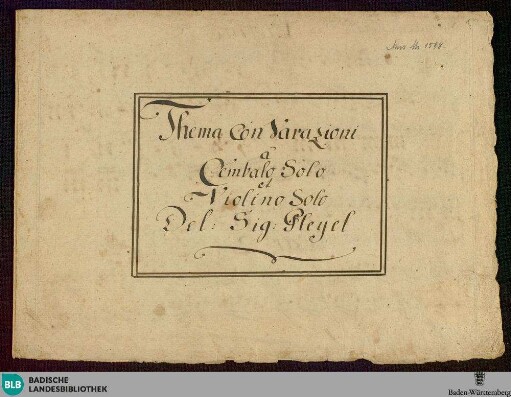 Mus. Hs. 1548.
Thema con Varazioni
a
Cembalo Solo
et
Violino Solo
Del: Sig: Pleyel
BLB
BADISCHE
LANDESBIBLIOTHEK
Baden-Württemberg